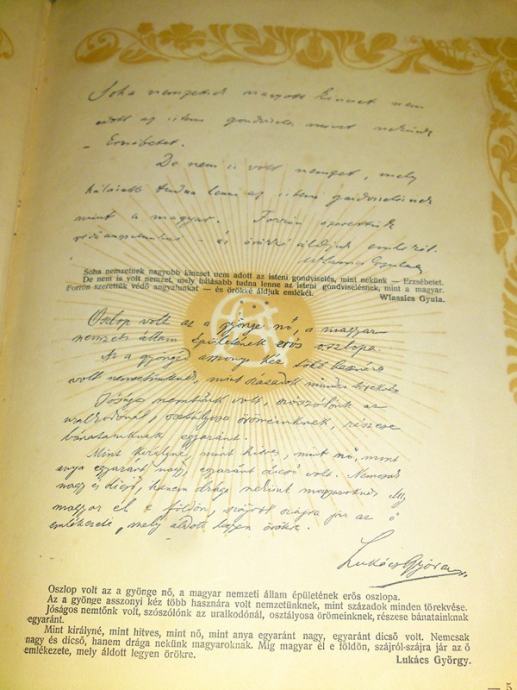 Soha nemzetnek nagyobb kincset nem
adott az isteni gondviselés, mint nekünk
– Erzsébetet.
De nem is volt nemzet, mely
hálásabb tudna lenne az isteni gondviselésnek
mint a magyar. Forrón szerettük
védőangyalunkat – és örökké áldjuk emlékét.
Wlassics Gyula
Soha nemzetnek nagyobb kincset nem adott az isteni gondviselés, mint nekünk — Erzsébetet.
De nem is volt nemzet, mely hálásabb tudna lenne az isteni gondviselésnek, mint a magyar.
Forrón szerettük védő angyalunkat — és örökké áldjuk emlékét.
Wlassics Gyula.
Oszlop volt az a gyönge nő, a magyar
nemzeti állam épületének erős oszlopa.
Az a gyönge asszonyi kéz több hasznára
volt nemzetünknek, mint századok minden törekvése.
Jóságos nemtőnk volt, szószólónk az
uralkodónál, osztályosa örömeinknek, részese
bánatainknak egyaránt.
Mint királyné, mint hitves, mint nő, mint
anya egyaránt nagy, egyaránt dicső volt. Nemcsak
nagy és dicső, hanem drága nekünk magyaroknak. Míg
magyar él e földön, szájról szájra jár az ő
emlékezete, mely áldott legyen örökre.
Lukács György
Oszlop volt az a gyönge nő, a magyar nemzeti állam épületének erős oszlopa.
Az a gyönge asszonyi kéz több hasznára volt nemzetünknek, mint századok minden törekvése.
Jóságos nemtőnk volt, szószólónk az uralkodónál, osztályosa örömeinknek, részese bánatainknak
egyaránt.
Mint királyné, mint hitves, mint nő, mint anya egyaránt nagy, egyaránt dicső volt. Nemcsak
nagy és dicső, hanem drága nekünk magyaroknak. Míg magyar él e földön, szájról-szájra jár az ő
emlékezete, mely áldott legyen örökre.
Lukács György.
— 5